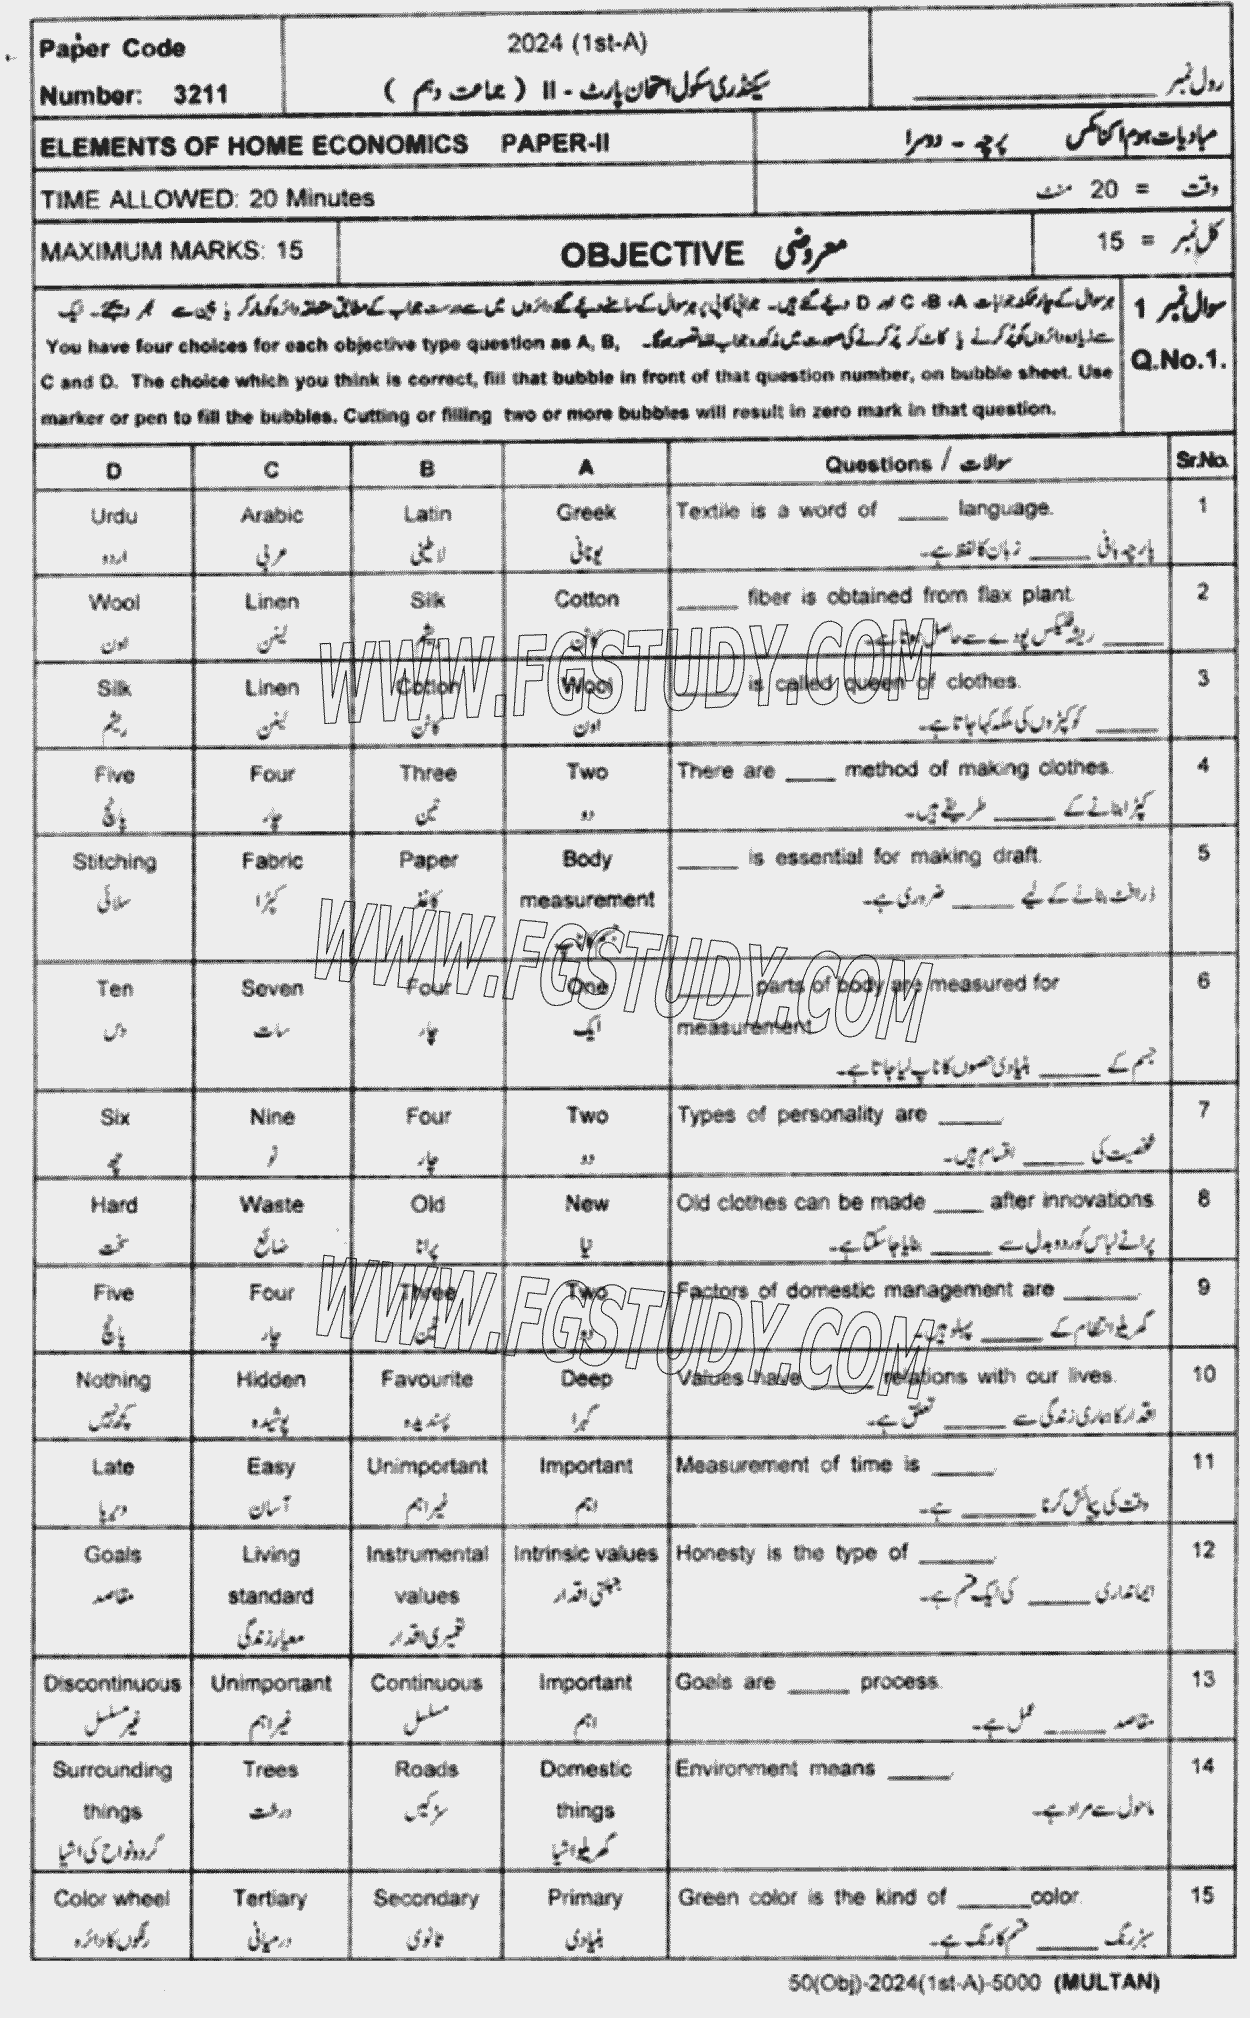 Paper Code
Number: 3211
2024 (1st-A)
سیکنڈری سکول امتحان پارٹ - II ( جماعت دہم )
رول نمبر ____________
ELEMENTS OF HOME ECONOMICS PAPER-II
مبادیات ہوم اکنامکس پرچہ - دوسرا
TIME ALLOWED: 20 Minutes
وقت = 20 منٹ
MAXIMUM MARKS: 15
OBJECTIVE معروضی
کل نمبر = 15
سوال نمبر 1
Q.No.1.
You have four choices for each objective type question as A, B,
C and D. The choice which you think is correct, fill that bubble in front of that question number, on bubble sheet. Use
marker or pen to fill the bubbles. Cutting or filling two or more bubbles will result in zero mark in that question.
D C B A Questions / سوالات Sr.No.
Urdu Arabic Latin Greek Textile is a word of ____ language. 1
اردو عربی لاطینی یونانی پارچہ بافی _____ زبان کا لفظ ہے۔
Wool Linen Silk Cotton _____ fiber is obtained from flax plant. 2
اون لینن ریشم کاٹن _____ ریشہ فلیکس پودے سے حاصل ہوتا ہے۔
Silk Linen Cotton Wool _____ is called queen of clothes. 3
ریشم لینن کاٹن اون _____ کو کپڑوں کی ملکہ کہا جاتا ہے۔
Five Four Three Two There are ____ method of making clothes. 4
پانچ چار تین دو کپڑا بنانے کے _____ طریقے ہیں۔
Stitching Fabric Paper Body measurement _____ is essential for making draft. 5
سلائی کپڑا کاغذ ڈرافٹ بنانے کے لیے _____ ضروری ہے۔
Ten Seven Four One ______ parts of body are measured for measurement. 6
دس سات چار ایک جسم کے _____ بنیادی حصوں کا ناپ لیا جاتا ہے۔
Six Nine Four Two Types of personality are _____. 7
چھ نو چار دو شخصیت کی _____ اقسام ہیں۔
Hard Waste Old New Old clothes can be made ____ after innovations 8
سخت ضائع پرانا نیا پرانے لباس کو ردوبدل سے _____ بنایا جا سکتا ہے۔
Five Four Three Two Factors of domestic management are ______. 9
پانچ چار تین دو گھریلو انتظام کے _____ پہلو ہیں۔
Nothing Hidden Favourite Deep Values have _____ relations with our lives. 10
کچھ نہیں پوشیدہ پسندیدہ گہرا اقدار کا ہماری زندگی سے _____ تعلق ہے۔
Late Easy Unimportant Important Measurement of time is _____. 11
دیرپا آسان غیر اہم اہم وقت کی پیمائش کرنا ______ ہے۔
Goals Living standard Instrumental values Intrinsic values Honesty is the type of ______. 12
مقاصد معیار زندگی تعمیری اقدار جبلتی اقدار ایمانداری _____ کی ایک قسم ہے۔
Discontinuous Unimportant Continuous Important Goals are _____ process. 13
غیر مسلسل غیر اہم مسلسل اہم مقاصد _____ عمل ہے۔
Surrounding things Trees Roads Domestic things Environment means _____. 14
گردونواح کی اشیا درخت سڑکیں گھریلو اشیا ماحول سے مراد ہے۔
Color wheel Tertiary Secondary Primary Green color is the kind of ______color. 15
رنگوں کا دائرہ درمیانی ثانوی بنیادی سبز رنگ _____ قسم کا رنگ ہے۔
50(Obj)-2024(1st-A)-5000 (MULTAN)
WWW.FGSTUDY.COM
WWW.FGSTUDY.COM
WWW.FGSTUDY.COM